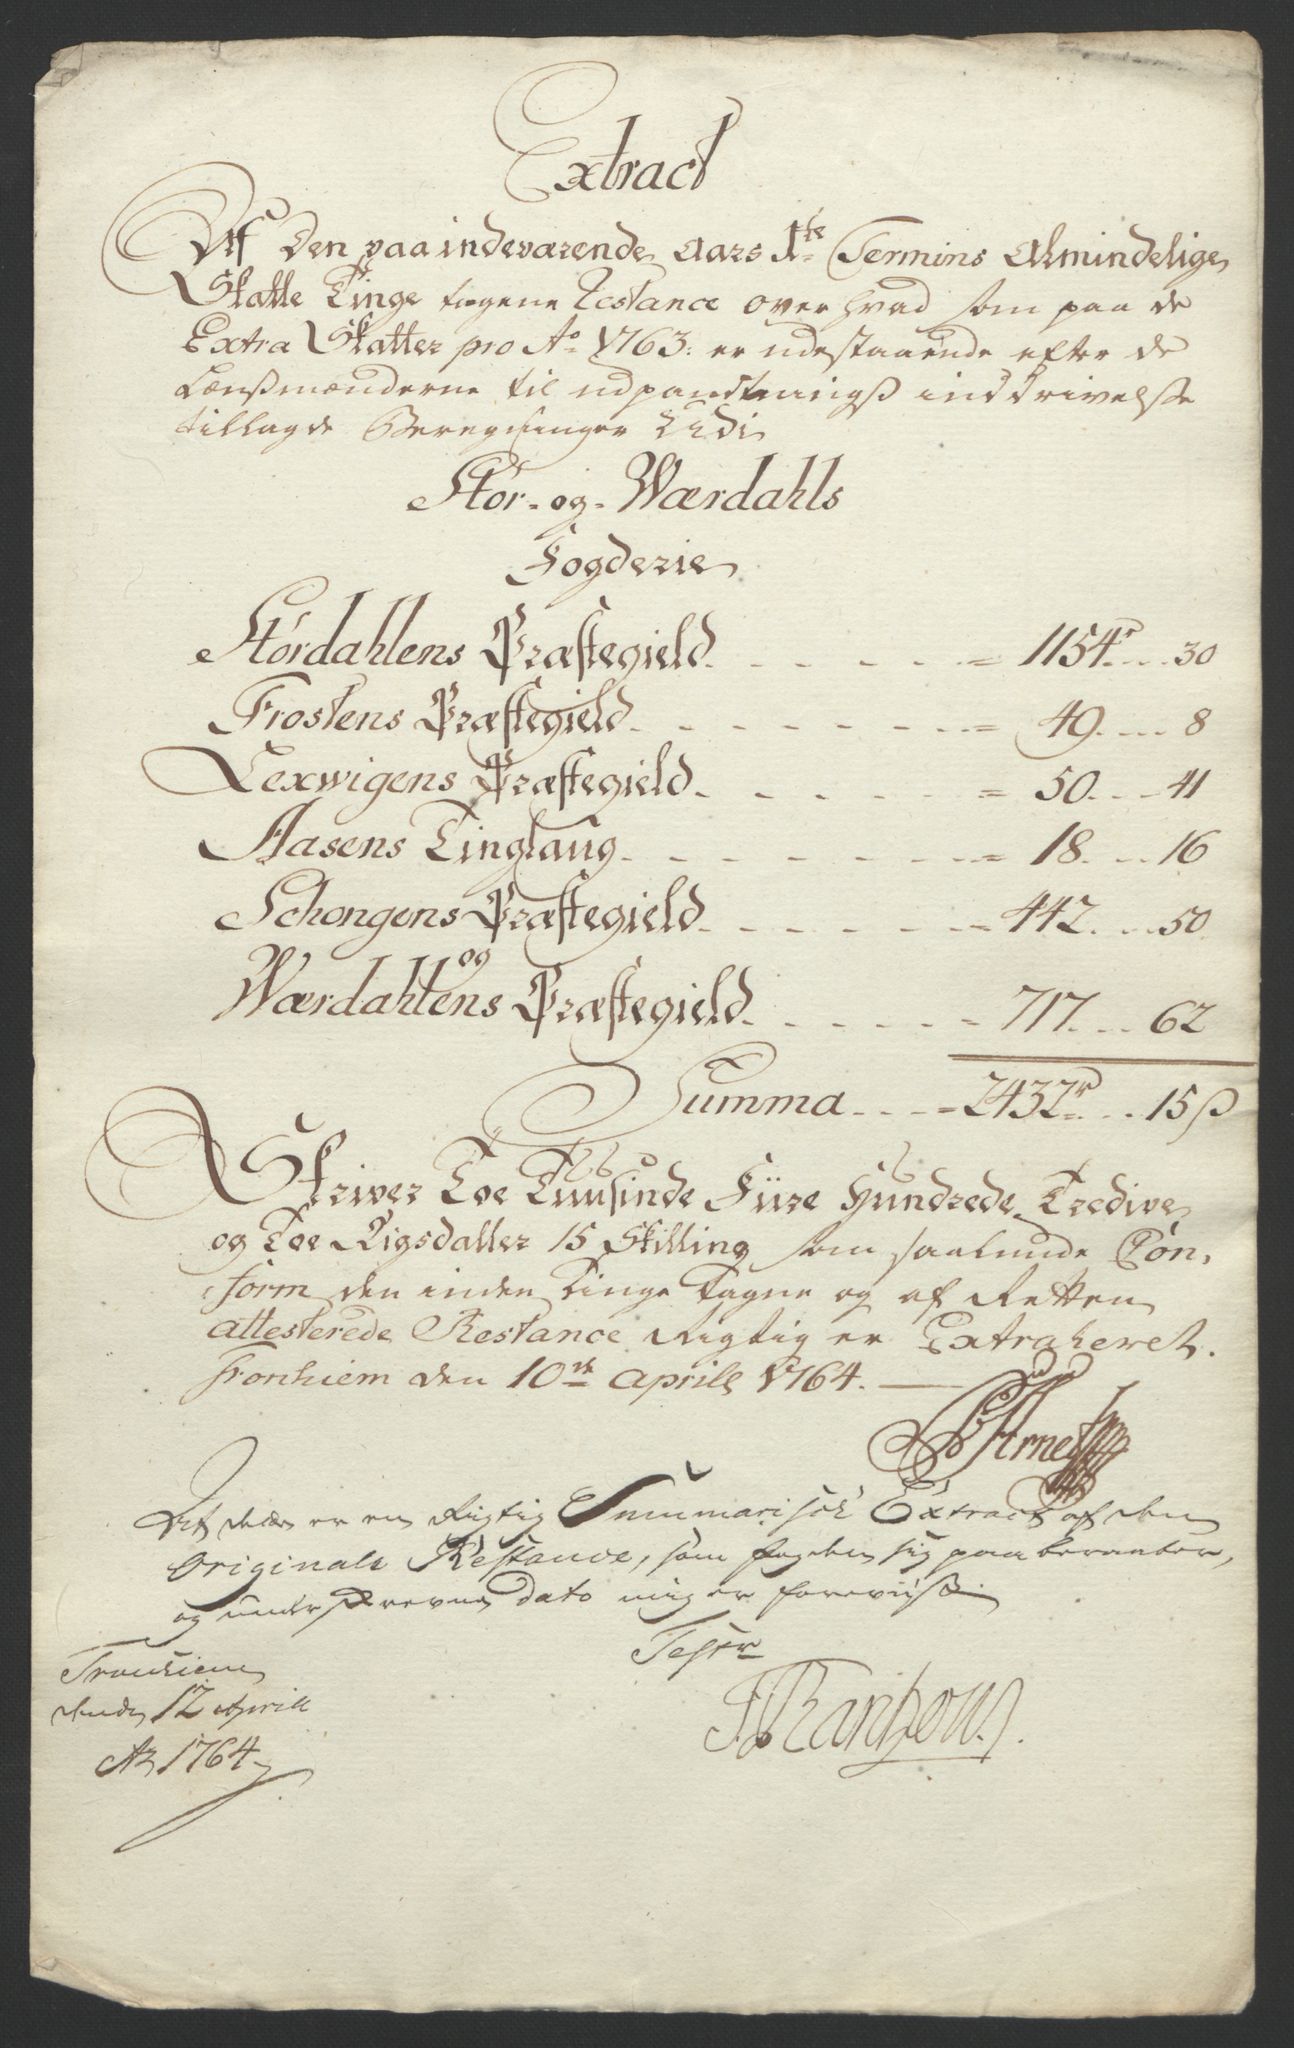 Extract
Af Den paa indeværende Aars 1te Termins Almindelige
Skatte Tinge tagene Restance over hvad som paa de
Extra Skatter pro Ao 1763: er udestaaende efter de
Lænßmænderne til udpantningß inddrivelße
tillagde Beregninger Udi
Stør- og- Wærdahls
Fogderie
Størdahlens Præstegield - - - - - = 1154r - - 30
Frostens Præstegield - - - - - - = 49 - - 8
Lexwigens Præstegield - - - - - = 50 - - 41
Aasens Tinglaug - - - - - - = 18 - - 16
Schongens Præstegield - - - - - = 442 - - 50
og
Wærdahlens Præstegield - - - - - = 717 - - 62
Summa - - - = 2432r - - 15 ß
Skriver Toe Tuusinde Fiire Hundrede Tredive
og Toe Rigsdaller 15 Skilling som saalunde Con-
form den inden Tinge Tagne og af Retten
attesterede Restance Rigtig er Extraheret.
Tronhiem den 10de Aprilis 1764. —
Arnet
At dette er en Rigtig Summarisk Extract af den
Originale Restance, som fogden sig paa beraaber,
og underskrevne Dato mig er foreviist
Tester
Tronhiem
dend 12 April
Ao 1764
Rantzow